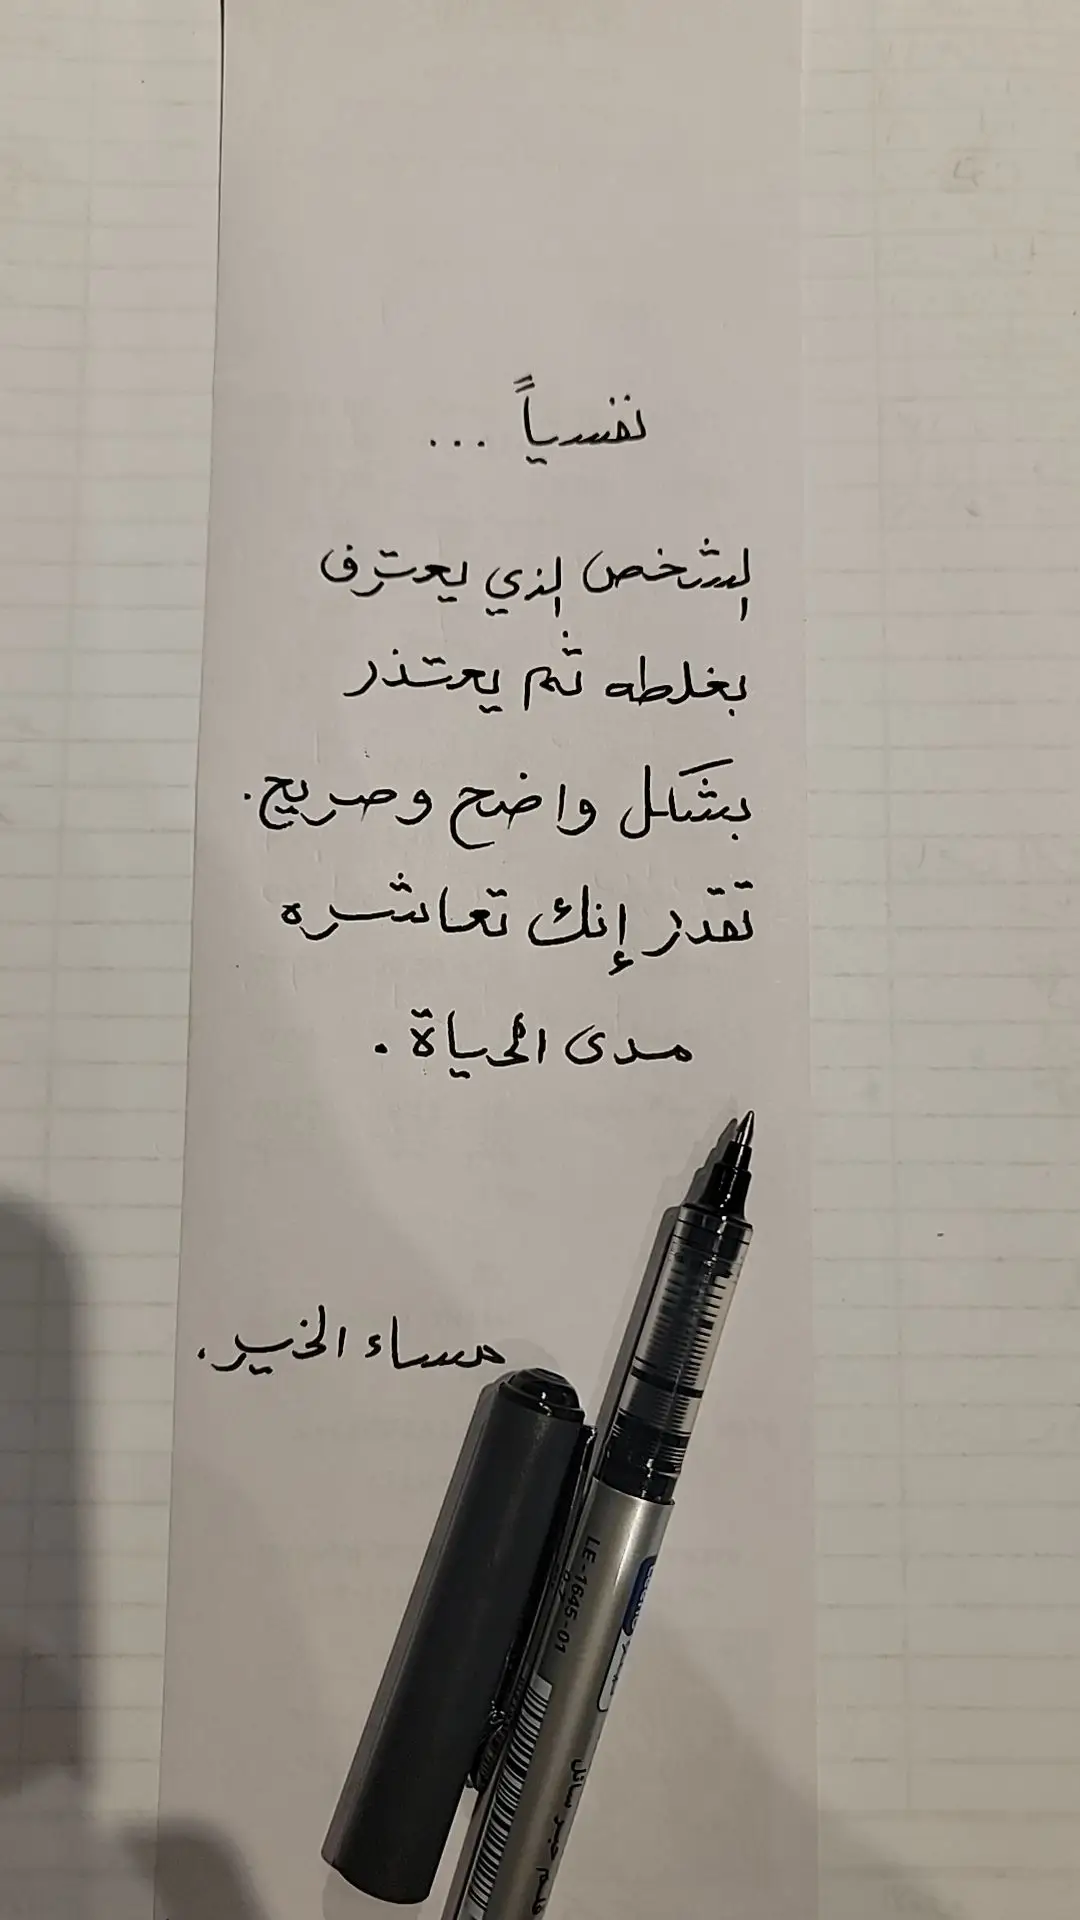 نفسياً ...
الشخص الذي يعترف
بغلطه ثم يعتذر
بشكل واضح وصريح.
تقدر إنك تعاشره
مدى الحياة .
مساء الخير.
LE-1645-01
0.7
قلم حبر سائل